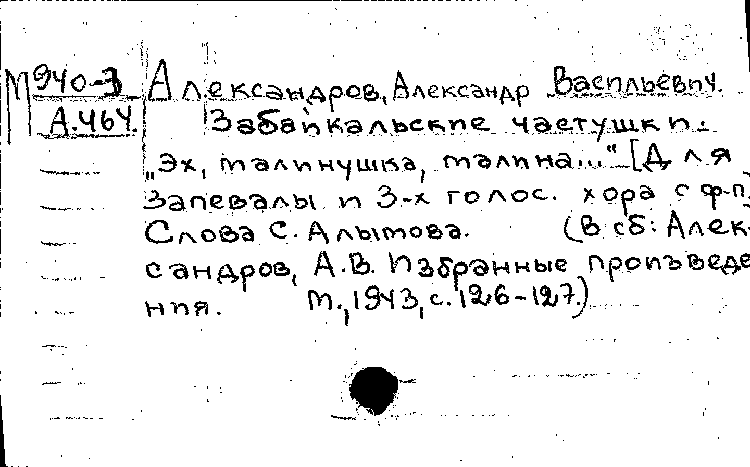 М 940-3 Александров, Александр Васильевич.
А.464. Забайкальские частушки.
„Эх, малинушка, малина..." [Для
запевалы и 3-х голос. хора с ф-п]
Слова С. Алымова. (В сб: Алек-
сандров, А.В. Избранные произведе
ния. М., 1943, с. 126-127.)